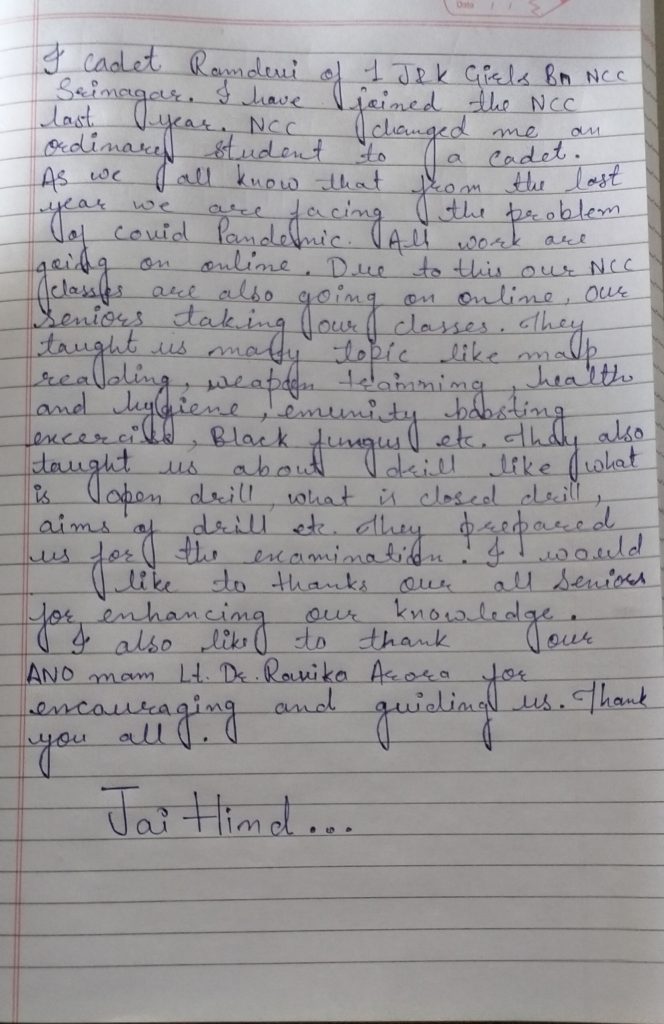 Date / /
I cadet Ramdevi of 1 J&K Girls Bn NCC
Srinagar. I have joined the NCC
last year. NCC changed me an
ordinary student to a cadet.
As we all know that from the last
year we are facing the problem
of covid Pandemic. All work are
going on online. Due to this our NCC
classes are also going on online, our
seniors taking our classes. They
taught us many topic like map
reading, weapon trainning, health
and hygiene, emunity boosting
excercise, Black fungus etc. They also
taught us about drill like what
is open drill, what is closed drill,
aims of drill etc. They prepared
us for the examination. I would
like to thanks our all seniors
for enhancing our knowledge.
I also like to thank our
ANO mam Lt. Dr. Ravika Arora for
encouraging and guiding us. Thank
you all.
Jai Hind...